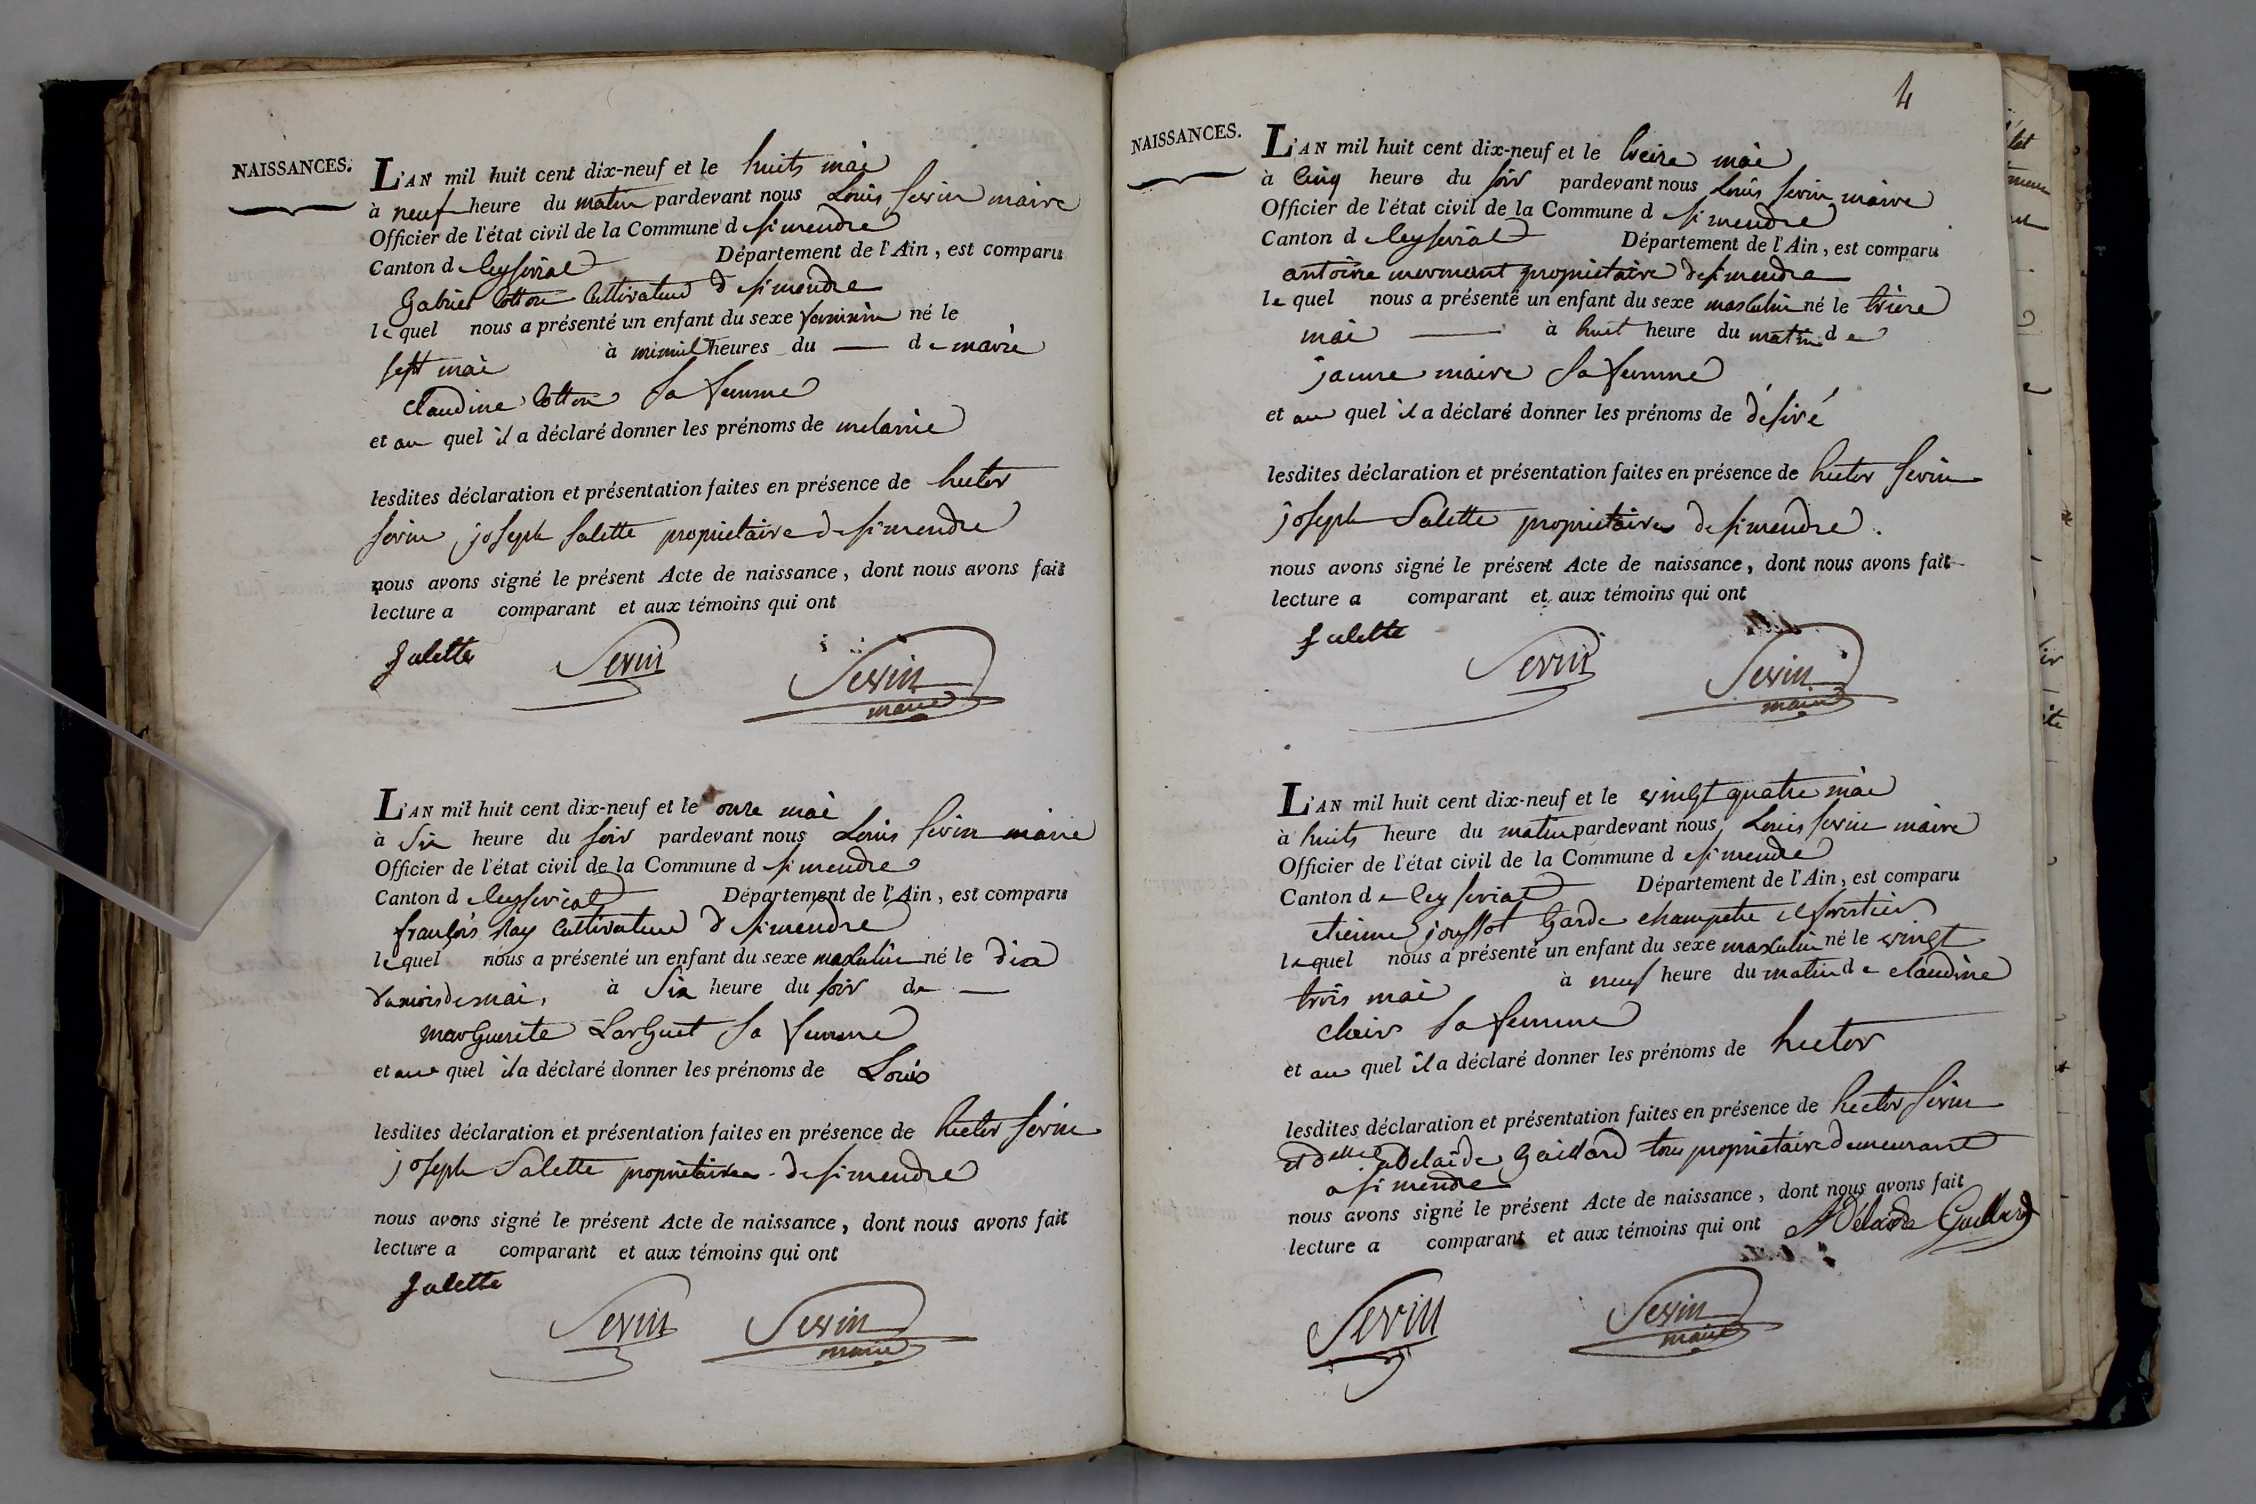 NAISSANCES.
L'AN mil huit cent dix-neuf et le huits mai
à neuf heure du matin pardevant nous Louis Sevin maire
Officier de l'état civil de la Commune d simendre
Canton d Ceyseriat Département de l'Ain, est comparu
Gabriel Cotton Cultivateur d simendre
lequel nous a présenté un enfant du sexe feminin né le
sept mai à minuit heures du — de marie
claudine Cotton sa femme
et au quel il a déclaré donner les prénoms de melanie
lesdites déclaration et présentation faites en présence de hector
sevin joseph salette proprietaire de simendre
nous avons signé le présent Acte de naissance, dont nous avons fait
lecture a comparant et aux témoins qui ont
Salette Sevin Sevin
maire
L'AN mil huit cent dix-neuf et le onze mai
à Six heure du soir pardevant nous Louis Sevin maire
Officier de l'état civil de la Commune d simendre
Canton d Ceyseriat Département de l'Ain, est comparu
françois Cultivateur d simendre
lequel nous a présenté un enfant du sexe masculin né le dix
du mois de mai, à Six heure du soir de —
marguerite Larguet sa femme
et au quel il a déclaré donner les prénoms de Louis
lesdites déclaration et présentation faites en présence de hector sevin
joseph Salette proprietaire de simendre
nous avons signé le présent Acte de naissance, dont nous avons fait
lecture a comparant et aux témoins qui ont
Salette
Sevin Sevin
maire
4
NAISSANCES.
L'AN mil huit cent dix-neuf et le treize mai
à Cinq heure du soir pardevant nous Louis sevin maire
Officier de l'état civil de la Commune d simendre
Canton d Ceyseriat Département de l'Ain, est comparu
antoine mermant proprietaire de simendre
lequel nous a présenté un enfant du sexe masculin né le
mai — à huit heure du matin de
jaune maire sa femme
et au quel il a déclaré donner les prénoms de désiré
lesdites déclaration et présentation faites en présence de hector Sevin
joseph Salette proprietaires de simendre.
nous avons signé le présent Acte de naissance, dont nous avons fait
lecture a comparant et aux témoins qui ont
Salette
Sevin Sevin
maire
L'AN mil huit cent dix-neuf et le vingt quatre mai
à huits heure du matin pardevant nous Louis sevin maire
Officier de l'état civil de la Commune d simendre
Canton de Ceyseriat Département de l'Ain, est comparu
etienne joussot Garde champetre et forestier
lequel nous a présenté un enfant du sexe masculin né le vingt
trois mai à neuf heure du matin de claudine
clair sa femme
et au quel il a déclaré donner les prénoms de hector
lesdites déclaration et présentation faites en présence de hector sevin
et delle adelaide Gaillard tous proprietaire demeurant
a simendre
nous avons signé le présent Acte de naissance, dont nous avons fait
lecture a comparant et aux témoins qui ont Adélaïde Gaillard
Sevin Sevin
maire